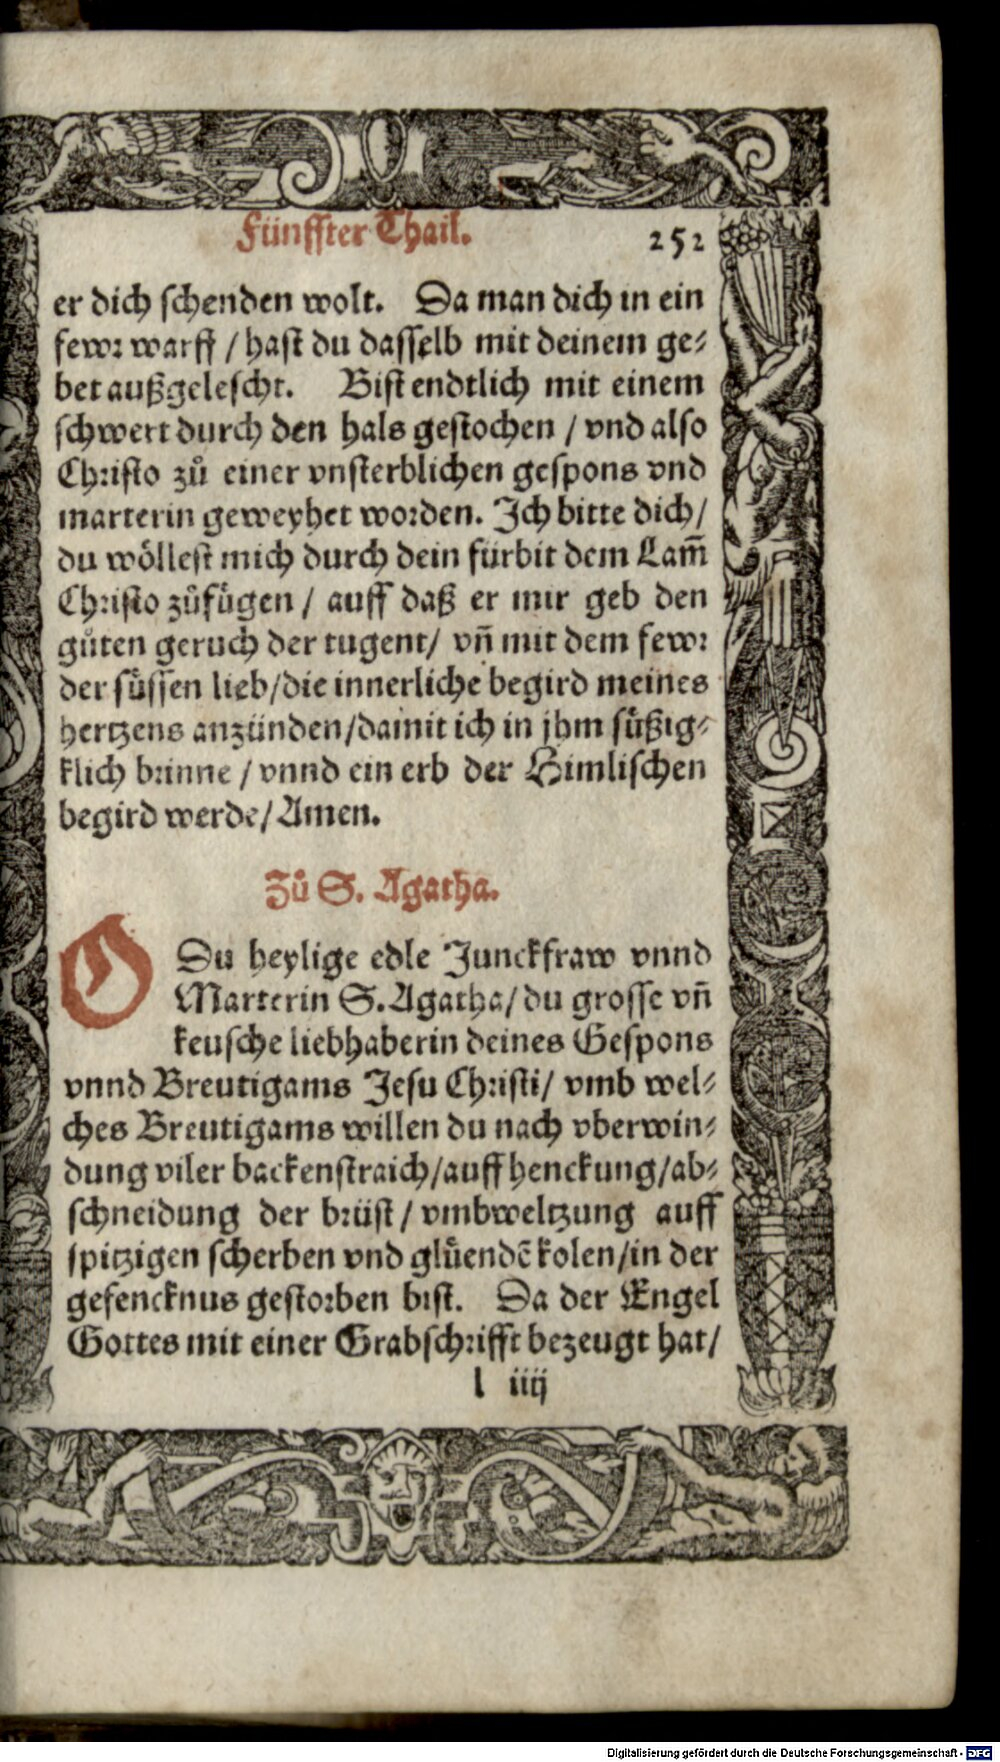 Fünffter Thail. 252
er dich schenden wolt. Da man dich in ein
fewr warff / hast du dasselb mit deinem ge⸗
bet außgelescht. Bist endtlich mit einem
schwert durch den hals gestochen / vnd also
Christo zů einer vnsterblichen gespons vnd
marterin geweyhet worden. Ich bitte dich/
du wöllest mich durch dein fürbit dem Lam̃
Christo zůfügen / auff daß er mir geb den
gůten geruch der tugent/ vñ mit dem fewr
der süssen lieb/die innerliche begird meines
hertzens anzünden/damit ich in jhm süßig⸗
klich brinne / vnnd ein erb der Himlischen
begird werde/ Amen.
Zů S. Agatha.
O Du heylige edle Junckfraw vnnd
Marterin S. Agatha/ du grosse vñ
keusche liebhaberin deines Gespons
vnnd Breutigams Jesu Christi/ vmb wel⸗
ches Breutigams willen du nach vberwin⸗
dung viler backenstraich/auffhenckung/ab⸗
schneidung der brüst / vmbweltzung auff
spitzigen scherben vnd glüendẽ kolen/in der
gefencknus gestorben bist. Da der Engel
Gottes mit einer Grabschrifft bezeugt hat/
l iiij
Digitalisierung gefördert durch die Deutsche Forschungsgemeinschaft - DFG